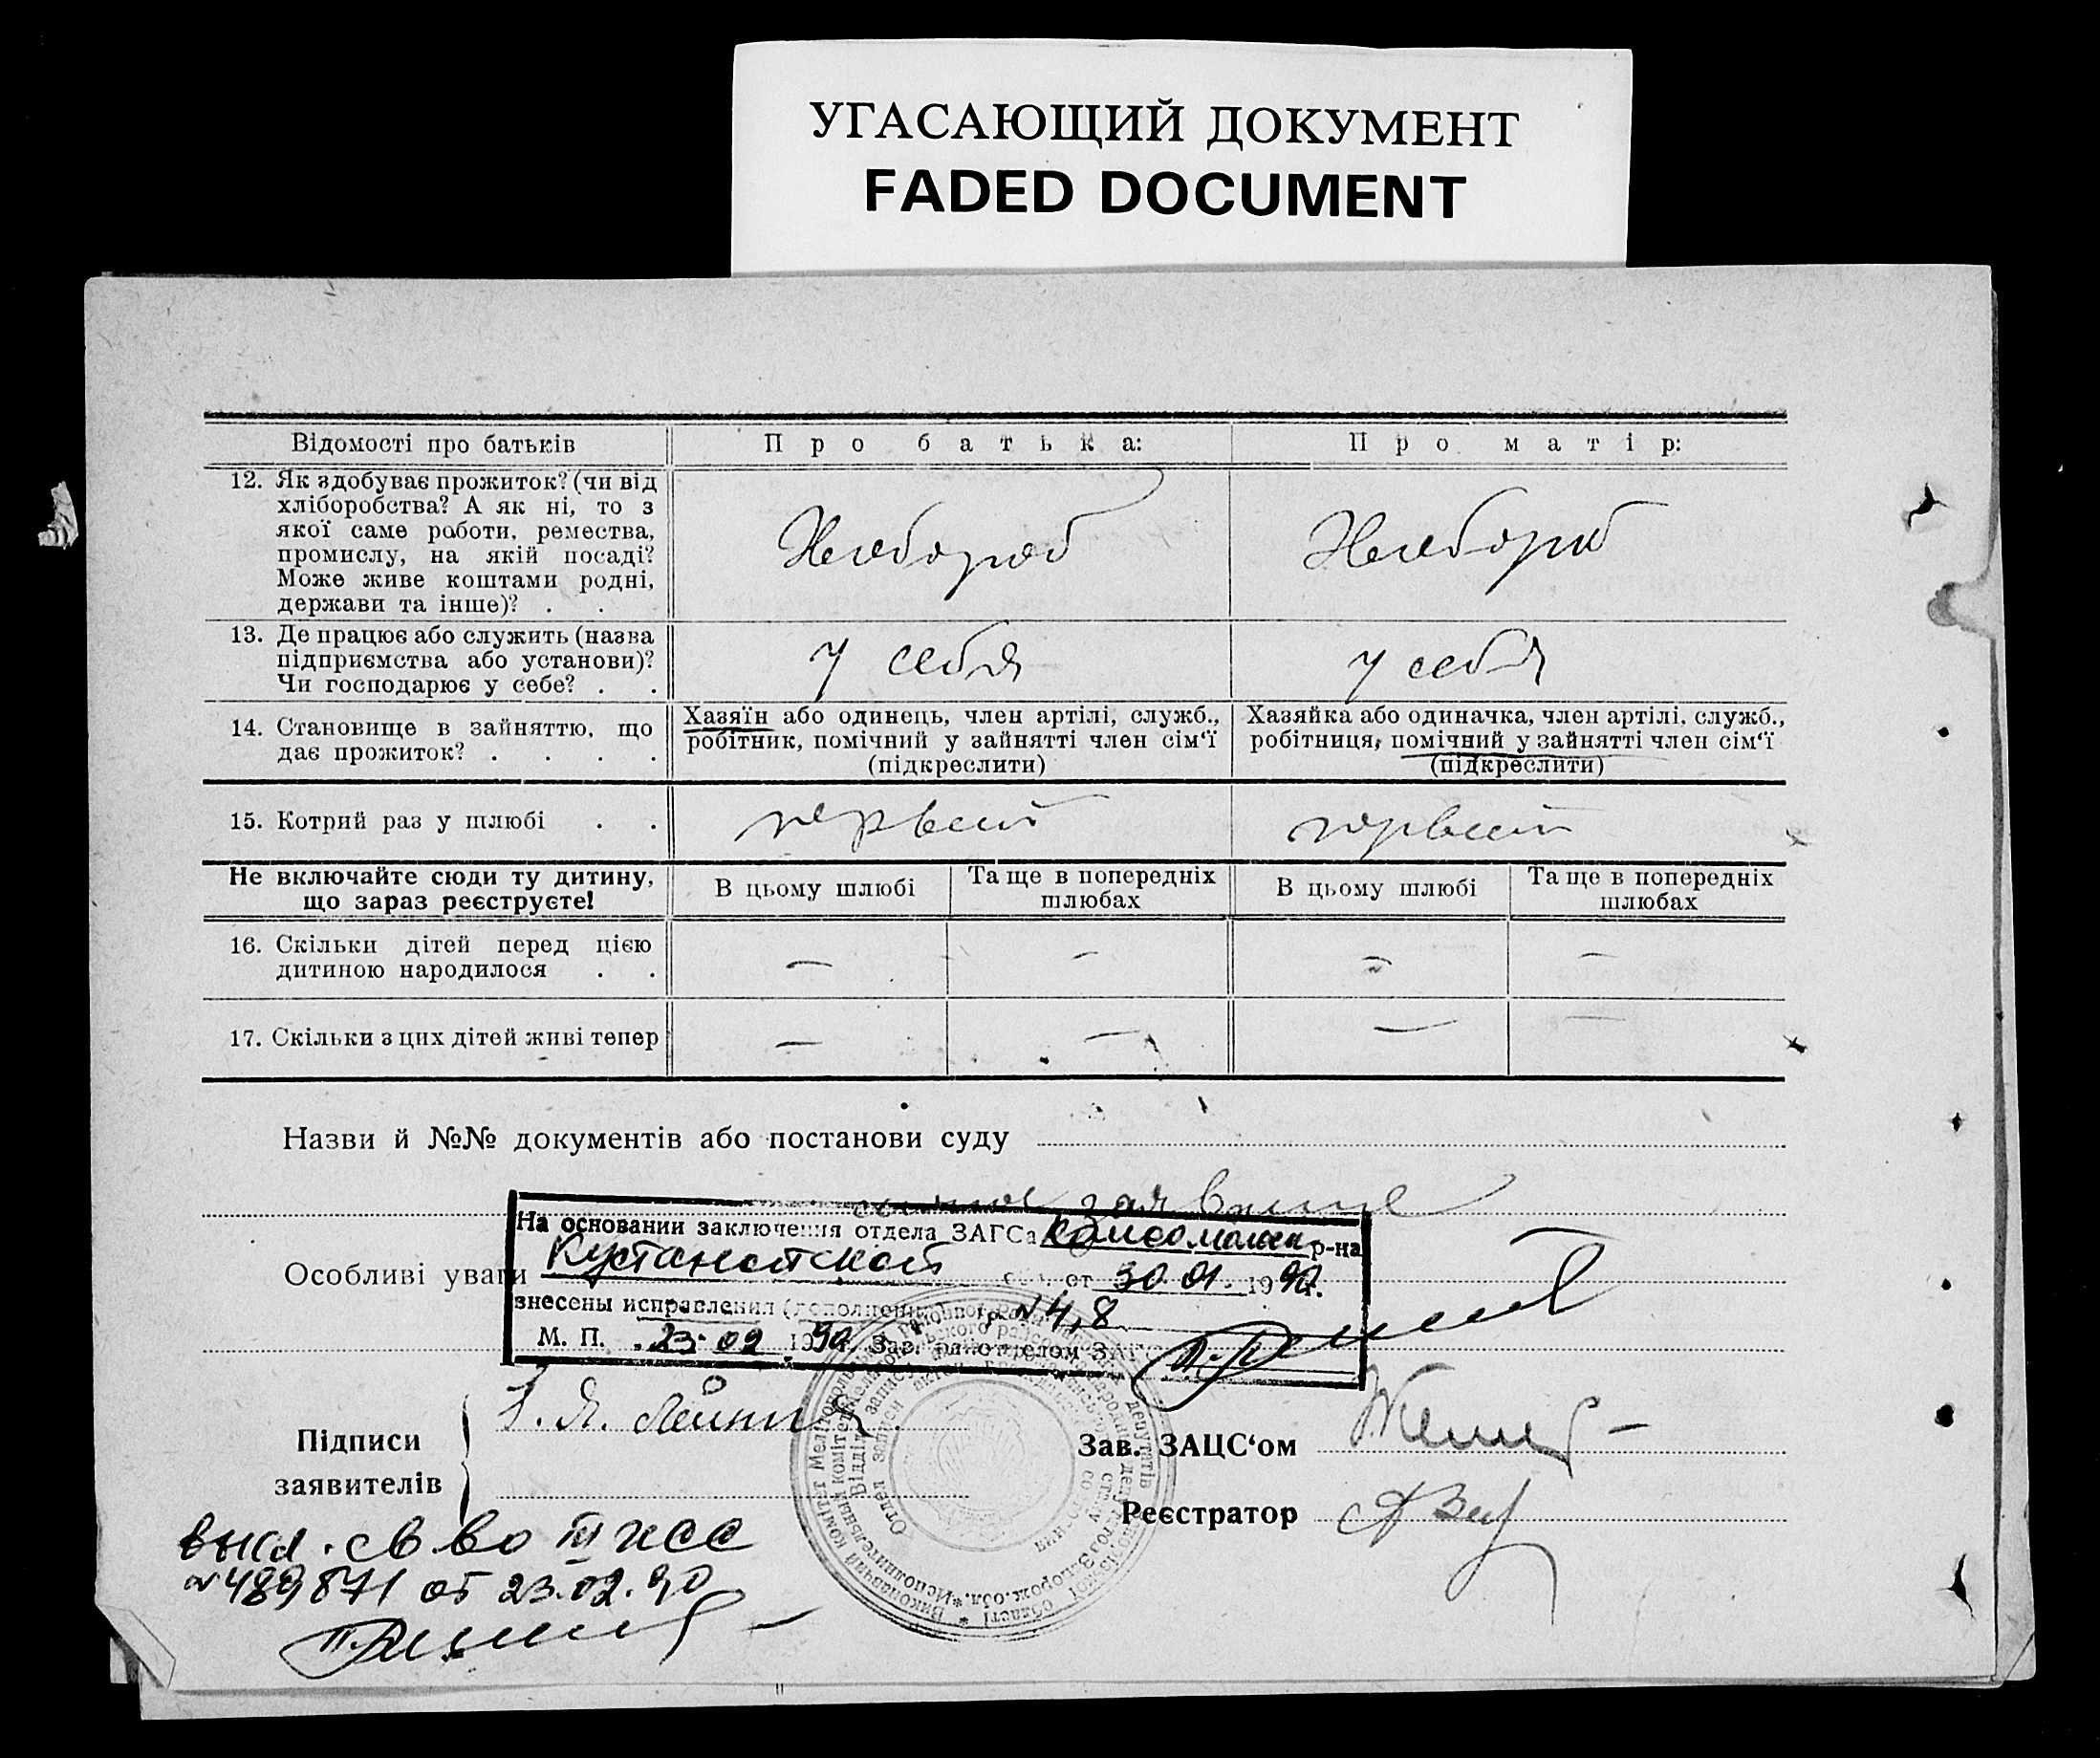 УГАСАЮЩИЙ ДОКУМЕНТ
FADED DOCUMENT
Відомості про батьків
Про батька:
Про матір:
12. Як здобуває прожиток? (чи від
хліборобства? А як ні, то з
якої саме роботи, ремества,
промислу, на якій посаді?
Може живе коштами родні,
держави та інше)? . .
Хлебороб
Хлебороб
13. Де працює або служить (назва
підприємства або установи)?
Чи господарює у себе? . .
у себя
у себя
14. Становище в зайняттю, що
дає прожиток? . . . .
Хазяїн або одинець, член артілі, служб.,
робітник, помічний у зайнятті член сім‘ї
(підкреслити)
Хазяйка або одиначка, член артілі, служб.,
робітниця, помічний у зайнятті член сім‘ї
(підкреслити)
15. Котрий раз у шлюбі . .
первый
первый
Не включайте сюди ту дитину,
що зараз реєструєте!
В цьому шлюбі
Та ще в попередніх
шлюбах
В цьому шлюбі
Та ще в попередніх
шлюбах
16. Скільки дітей перед цією
дитиною народилося . .
— — — —
17. Скільки з цих дітей живі тепер
— — — —
Назви й №№ документів або постанови суду
На основании заключения отдела ЗАГСа р-на
Особливі уваги Кустанайской от 30.01.1990г.
внесены исправления (дополнения) в гр. №4,8
М. П. 23.02 1990г. Зав. райотделом ЗАГС
Підписи
заявителів
Зав. ЗАЦС‘ом
Реєстратор
выд. св-во III ЖС
№489871 от 23.02.90